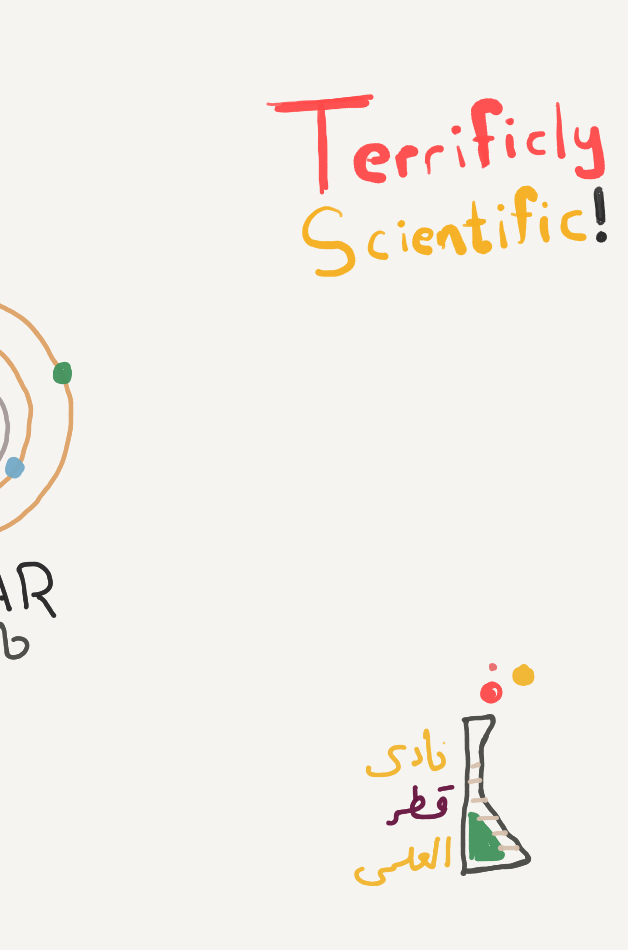 Terrificly
Scientific!
AR
نادي
قطر
العلمي